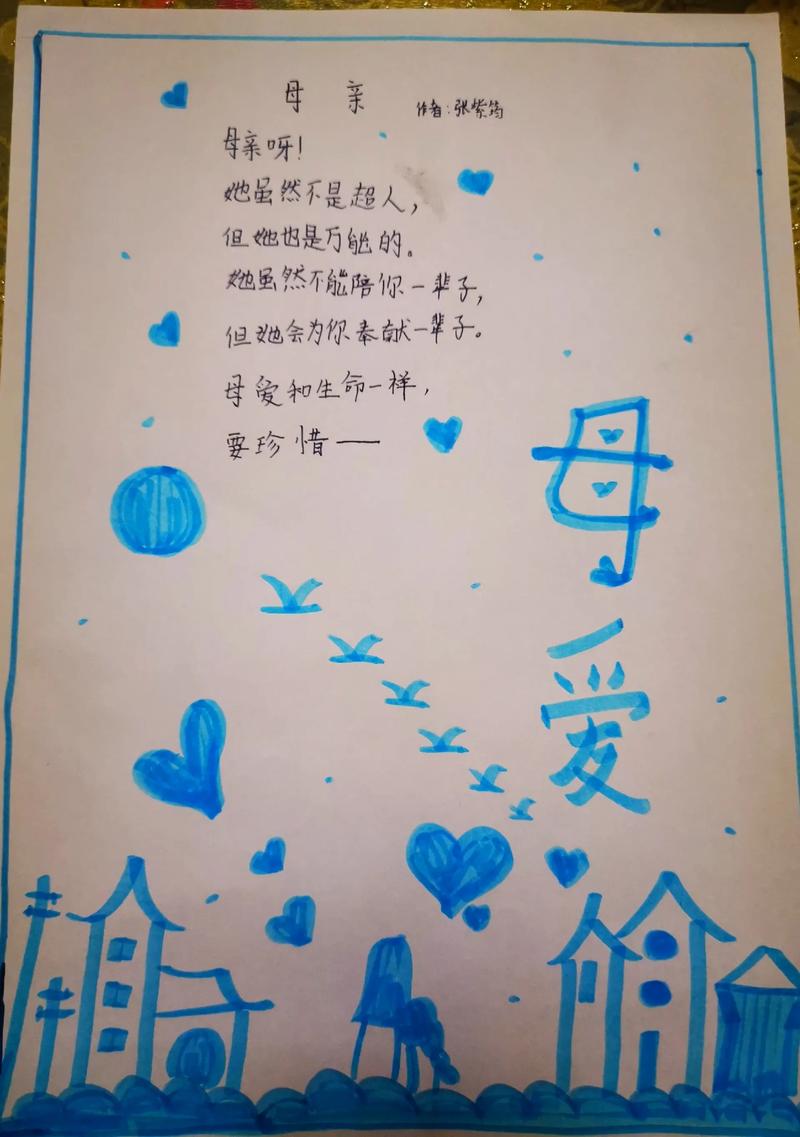 母 亲 作者:张紫筠
母亲呀!
她虽然不是超人,
但她也是万能的。
她虽然不能陪你一辈子,
但她会为你奉献一辈子。
母爱和生命一样,
要珍惜——
母爱